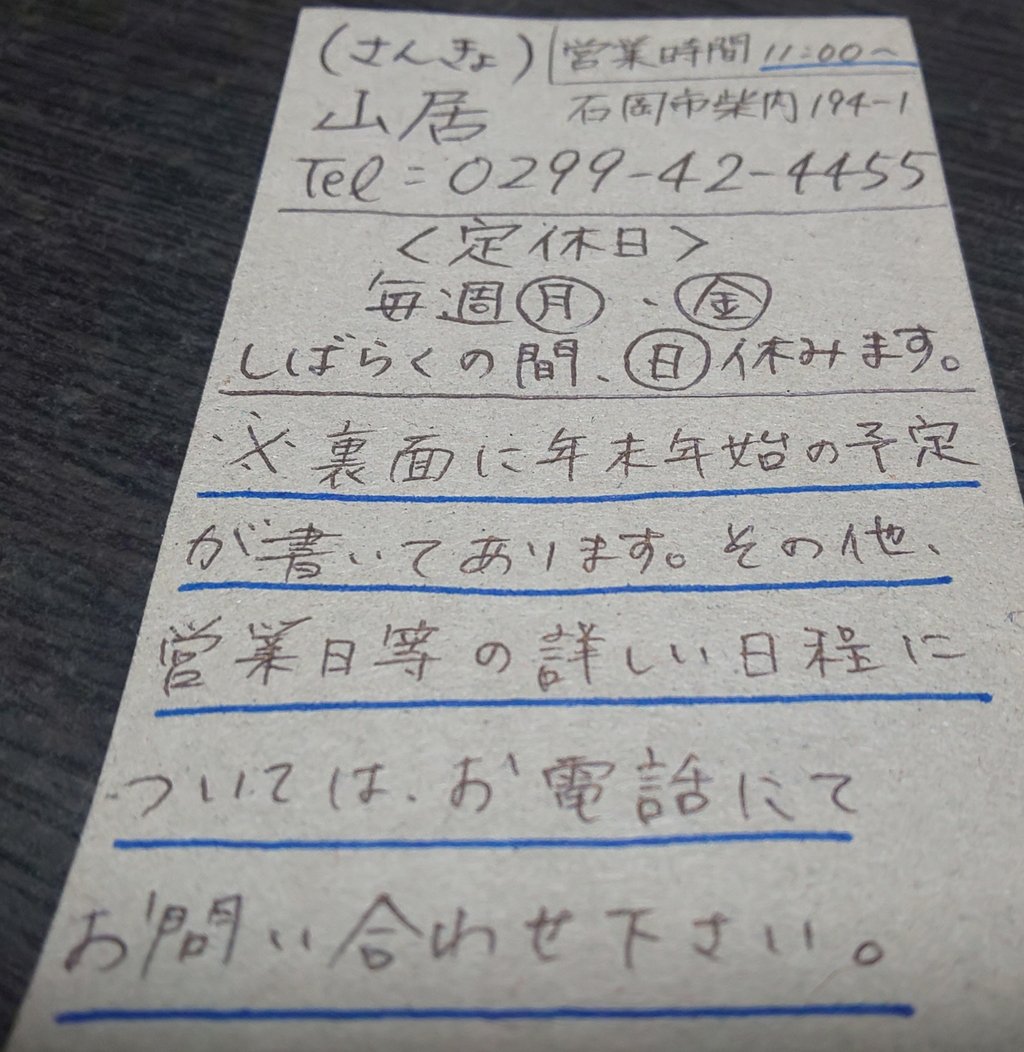 (さんきょ)
山居
営業時間 11:00~
石岡市柴内194-1
Tel=0299-42-4455
<定休日>
毎週㊊・㊎
しばらくの間、㊐休みます。
※裏面に年末年始の予定
が書いてあります。その他、
営業日等の詳しい日程に
ついては、お電話にて
お問い合わせ下さい。